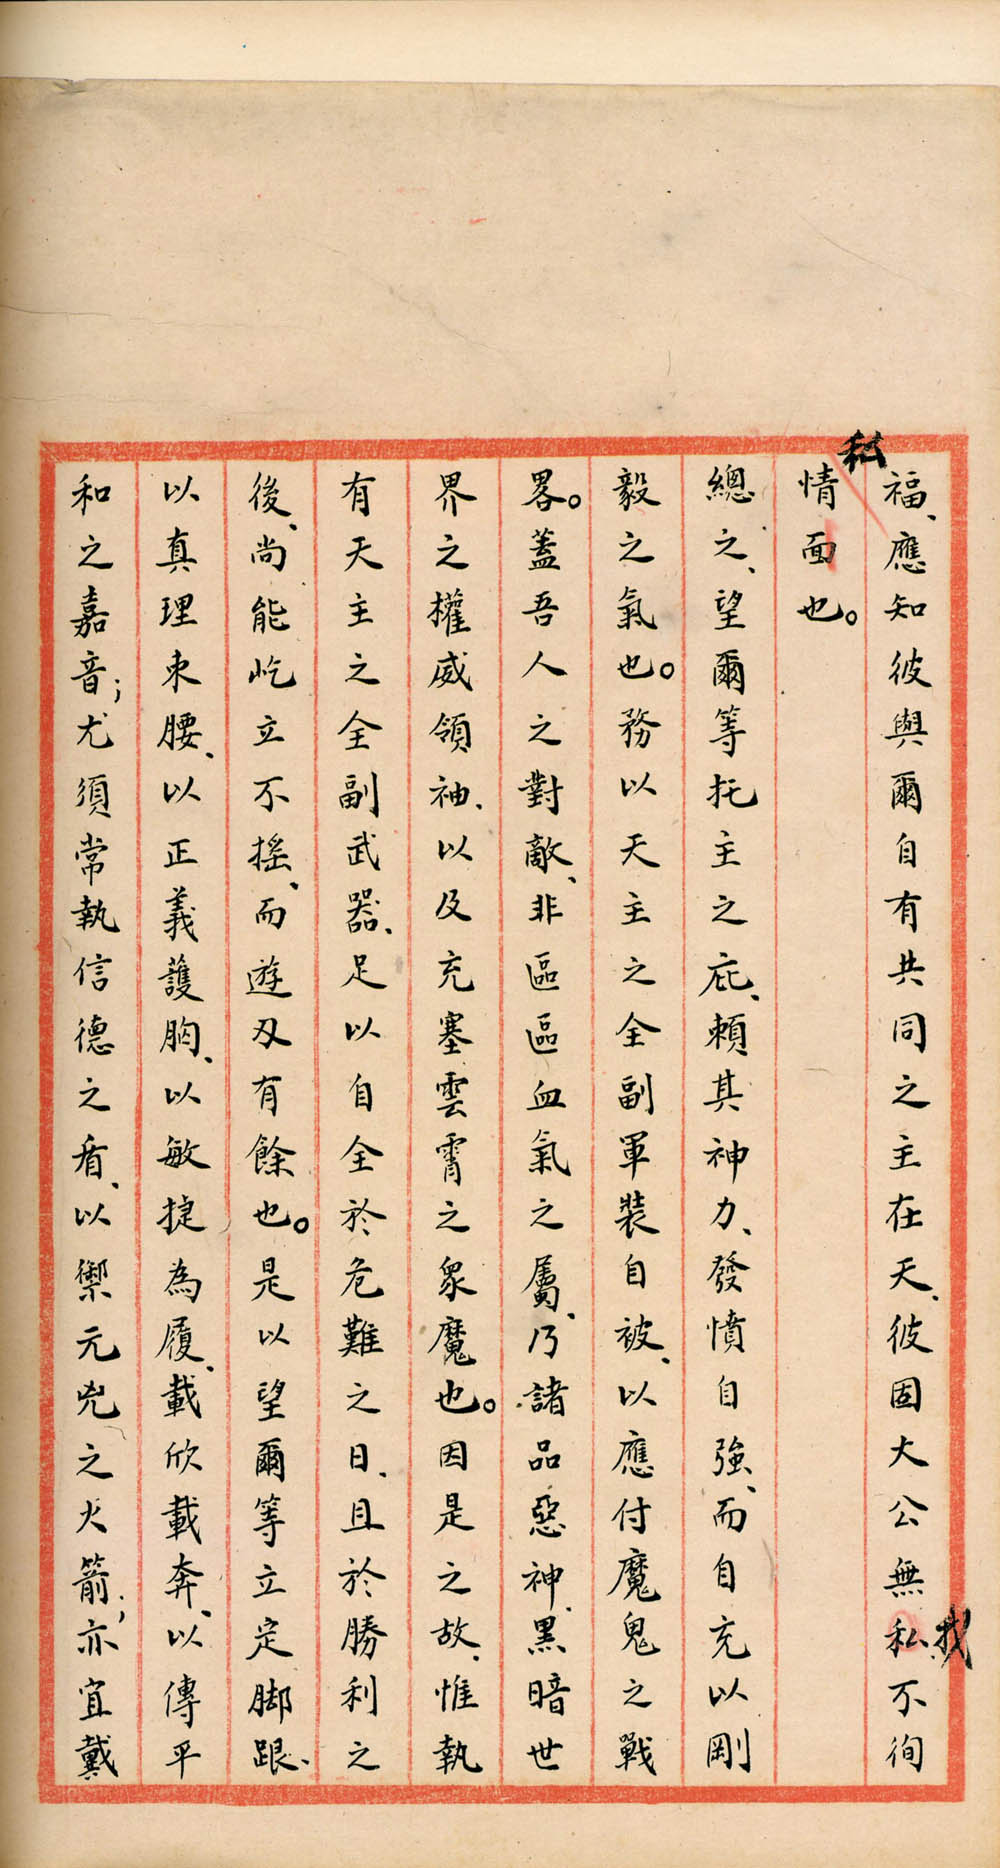 福、應知彼與爾自有共同之主在天、彼固大公無私不徇
我
私
情面也。
總之、望爾等托主之庇、賴其神力、發憤自強、而自充以剛
毅之氣也。務以天主之全副軍裝自被、以應付魔鬼之戰
畧。蓋吾人之對敵、非區區血氣之屬、乃諸品惡神、黑暗世
界之權威領袖、以及充塞雲霄之眾魔也。因是之故、惟執
有天主之全副武器、足以自全於危難之日、且於勝利之
後、尚能屹立不搖、而遊刃有餘也。是以望爾等立定脚跟、
以真理束腰、以正義護胸、以敏捷為履、載欣載奔、以傳平
和之嘉音；尤須常執信德之盾、以禦元兇之火箭；亦宜戴